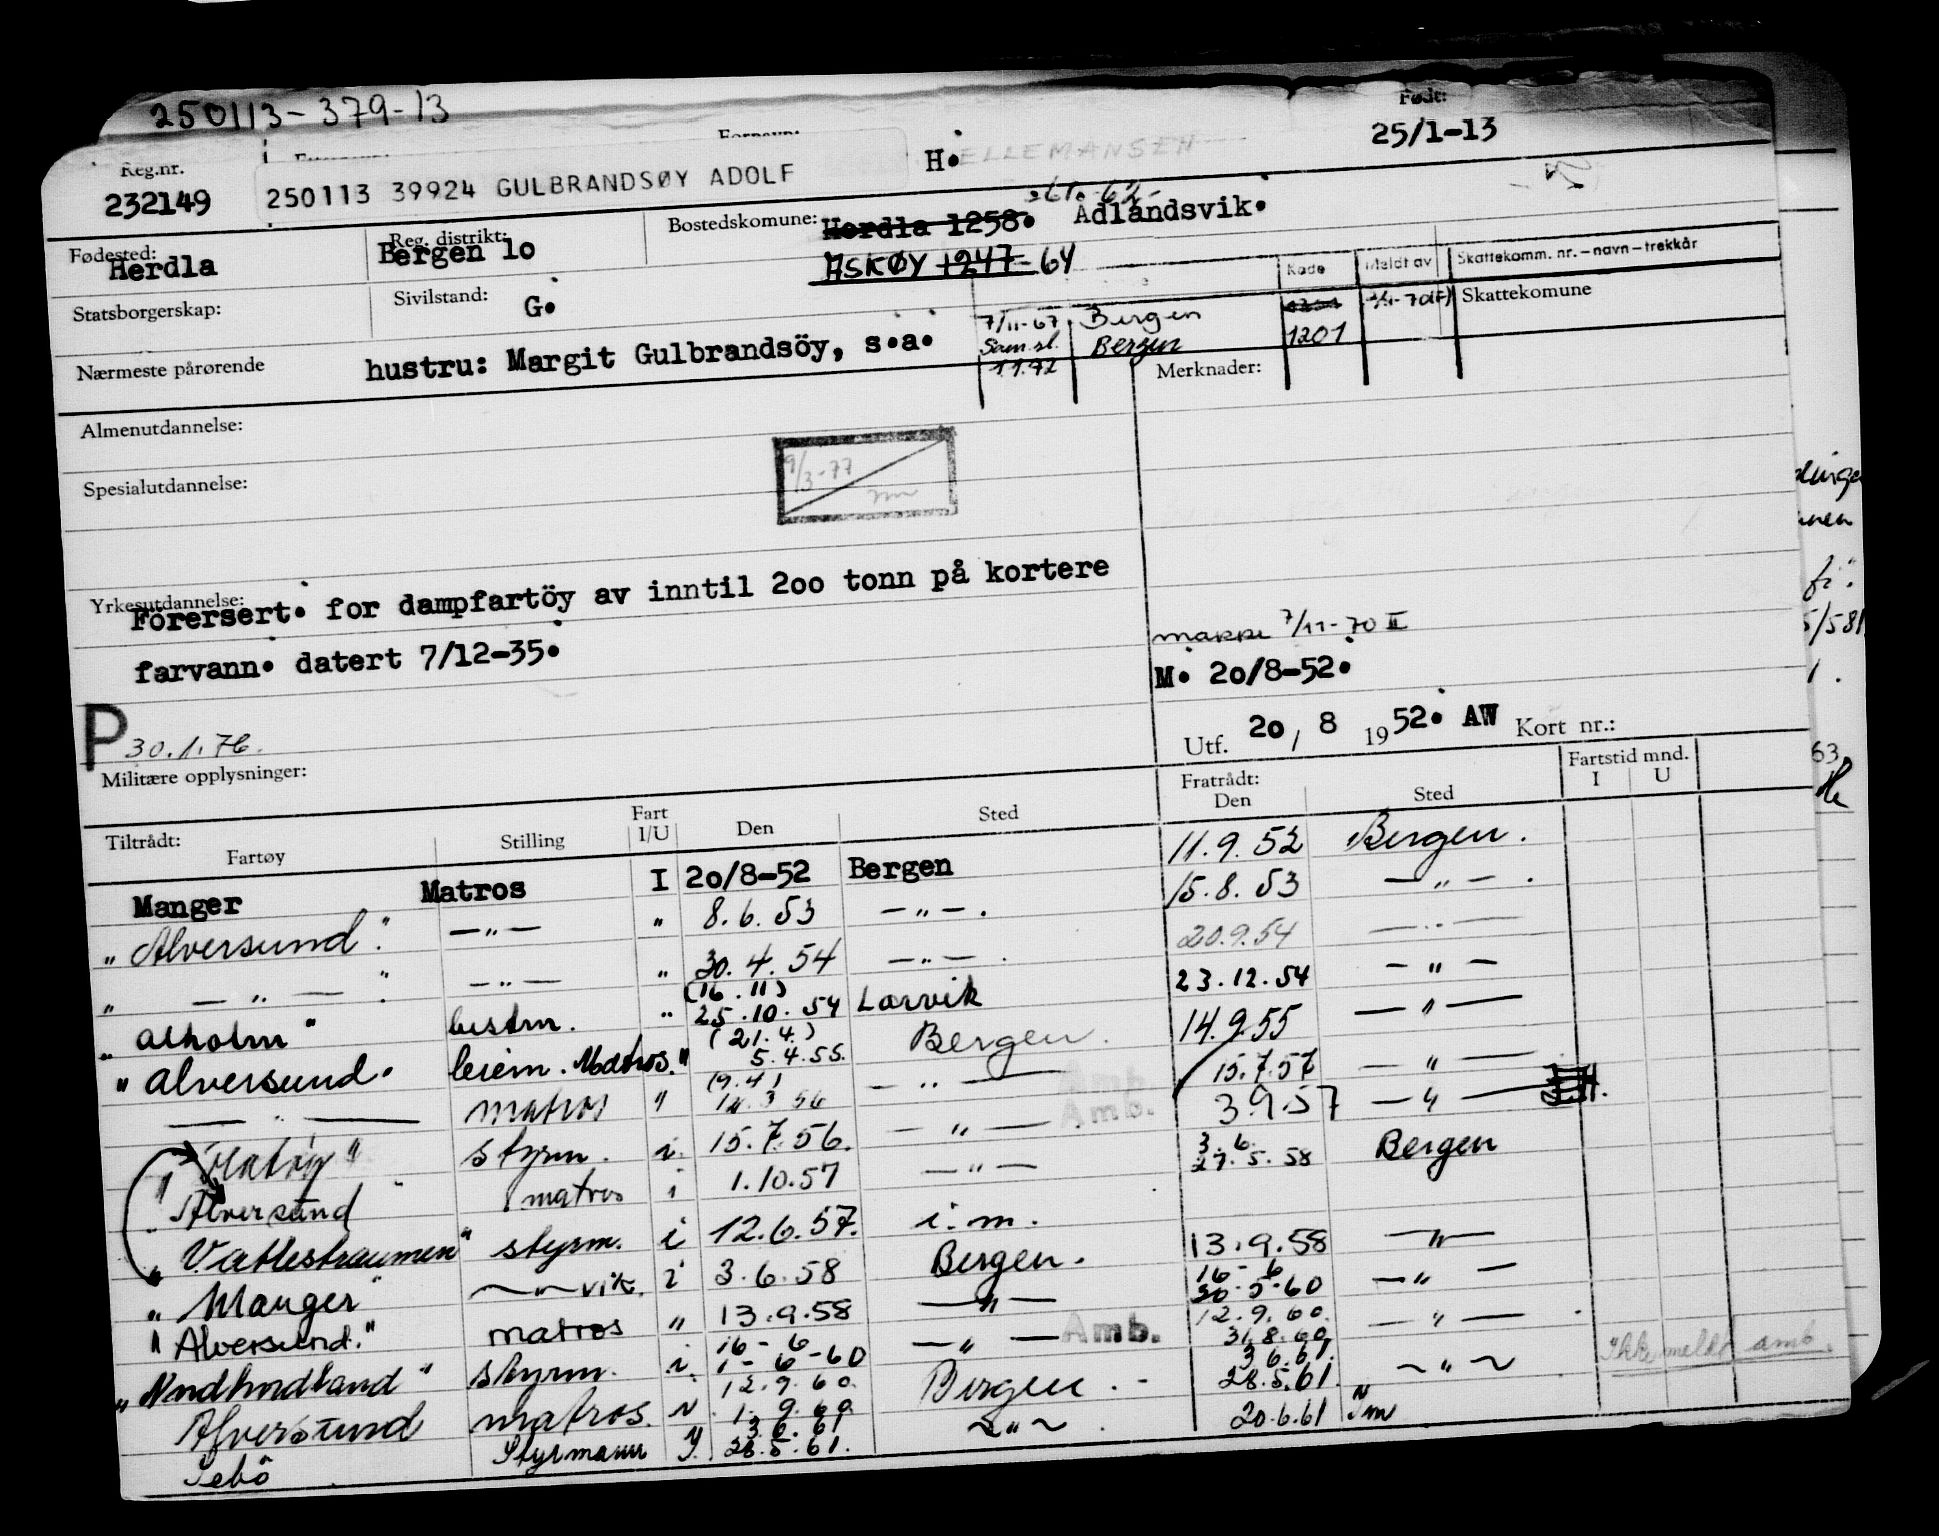 250113-379-13
Fornavn:
Født:
Reg.nr.
232149
250113 39924 GULBRANDSØY ADOLF
H.
ELLEMANSEN
25/1-13
Fødested:
Herdla
Reg. distrikt:
Bergen lo
Bostedskomune:
Herdla 1258.
Ådlandsvik.
ASKØY 1247-64
Statsborgerskap:
Sivilstand:
G.
Kode
Meldt av
Skattekomm. nr. – navn – trekkår
Skattekomune
7/11-67 Bergen
Sam.sl. Bergen 1201
1.1.72
Nærmeste pårørende
hustru: Margit Gulbrandsöy, s.a.
Merknader:
Almenutdannelse:
9/3-77
Spesialutdannelse:
Yrkesutdannelse:
Förersert. for dampfartöy av inntil 2oo tonn på kortere
farvann. datert 7/12-35.
7/11-70 II
M. 2o/8-52.
P 30.1.76.
Utf. 2o / 8 1952. AW Kort nr.:
Militære opplysninger:
Tiltrådt:
Fartøy
Stilling
Fart
I/U
Den
Sted
Fratrådt:
Den
Sted
Fartstid mnd.
I U
Manger Matros I 2o/8-52 Bergen 11.9.52 Bergen.
"Alversund". —"— " 8.6.53 —"—. 15.8.53 —"—.
" —"— ". —"— " 30.4.54 —"—. 20.9.54 —"—
(16.11)
"Alholm" bestm. " 25.10.54 Larvik 23.12.54 —"—
(21.4.)
"Alversund" Matros. " 5.4.55. Bergen. 14.9.55 —"—
(9.4)
—"— matros " 14.3 56 —"— Amb. 15.7.57 —"—
Amb.
styrm. i. 15.7.56. —"— 3.9.57 —"—
3.6.
Alversund matros i 1.10.57 —"— 27.5.58 Bergen
"Vatlestraumen" styrm. i 12.6.57. i.m.
"Manger" —"— vik. i 3.6.58 Bergen. 13.9.58 —"—
16-6
"Alversund." matros " 13.9.58 —"— 20-5-60 —"—
16-6 12.9.60.
"Nordhordland" styrm. i. 1-6-60 —"— Amb. 31.8.60 —"—
12.9.60. 3.6.61.
Alversund matros. 1.9.60 Bergen.- 28.5.61. ~"~ Ikke meldt amb.
3.6.61
Sebö Styrmann 28.5.61. ~"~. 20.6.61
63